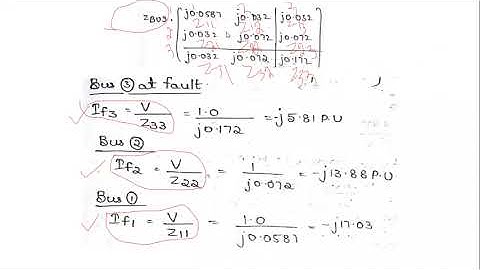 ZBUS = j0.0587 j0.032 j0.032
Z11
j0.032 j0.072 j0.072
j0.032 j0.072 j0.172
Bus ③ at fault
If3 = V/Z33 = 1.0/j0.172 = -j5.81 P.U
Bus ②
If2 = V/Z22 = 1/j0.072 = -j13.88 P.U
Bus ①
If1 = V/Z11 = 1.0/j0.0587 = -j17.03